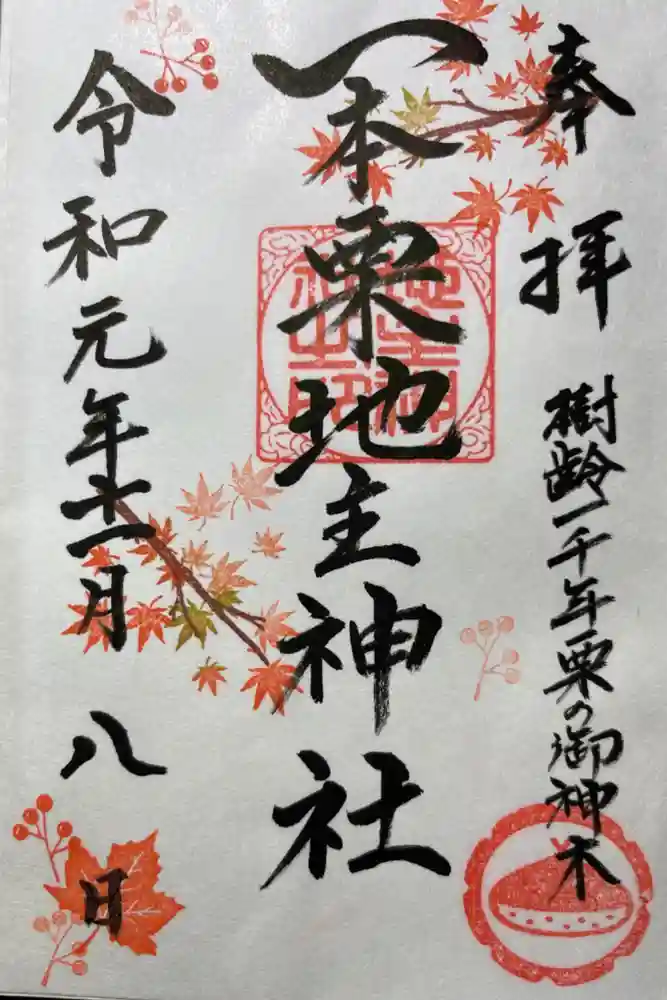 奉拝
樹齢一千年栗の御神木
一本栗地主神社
地主神社之印
令和元年十一月八日